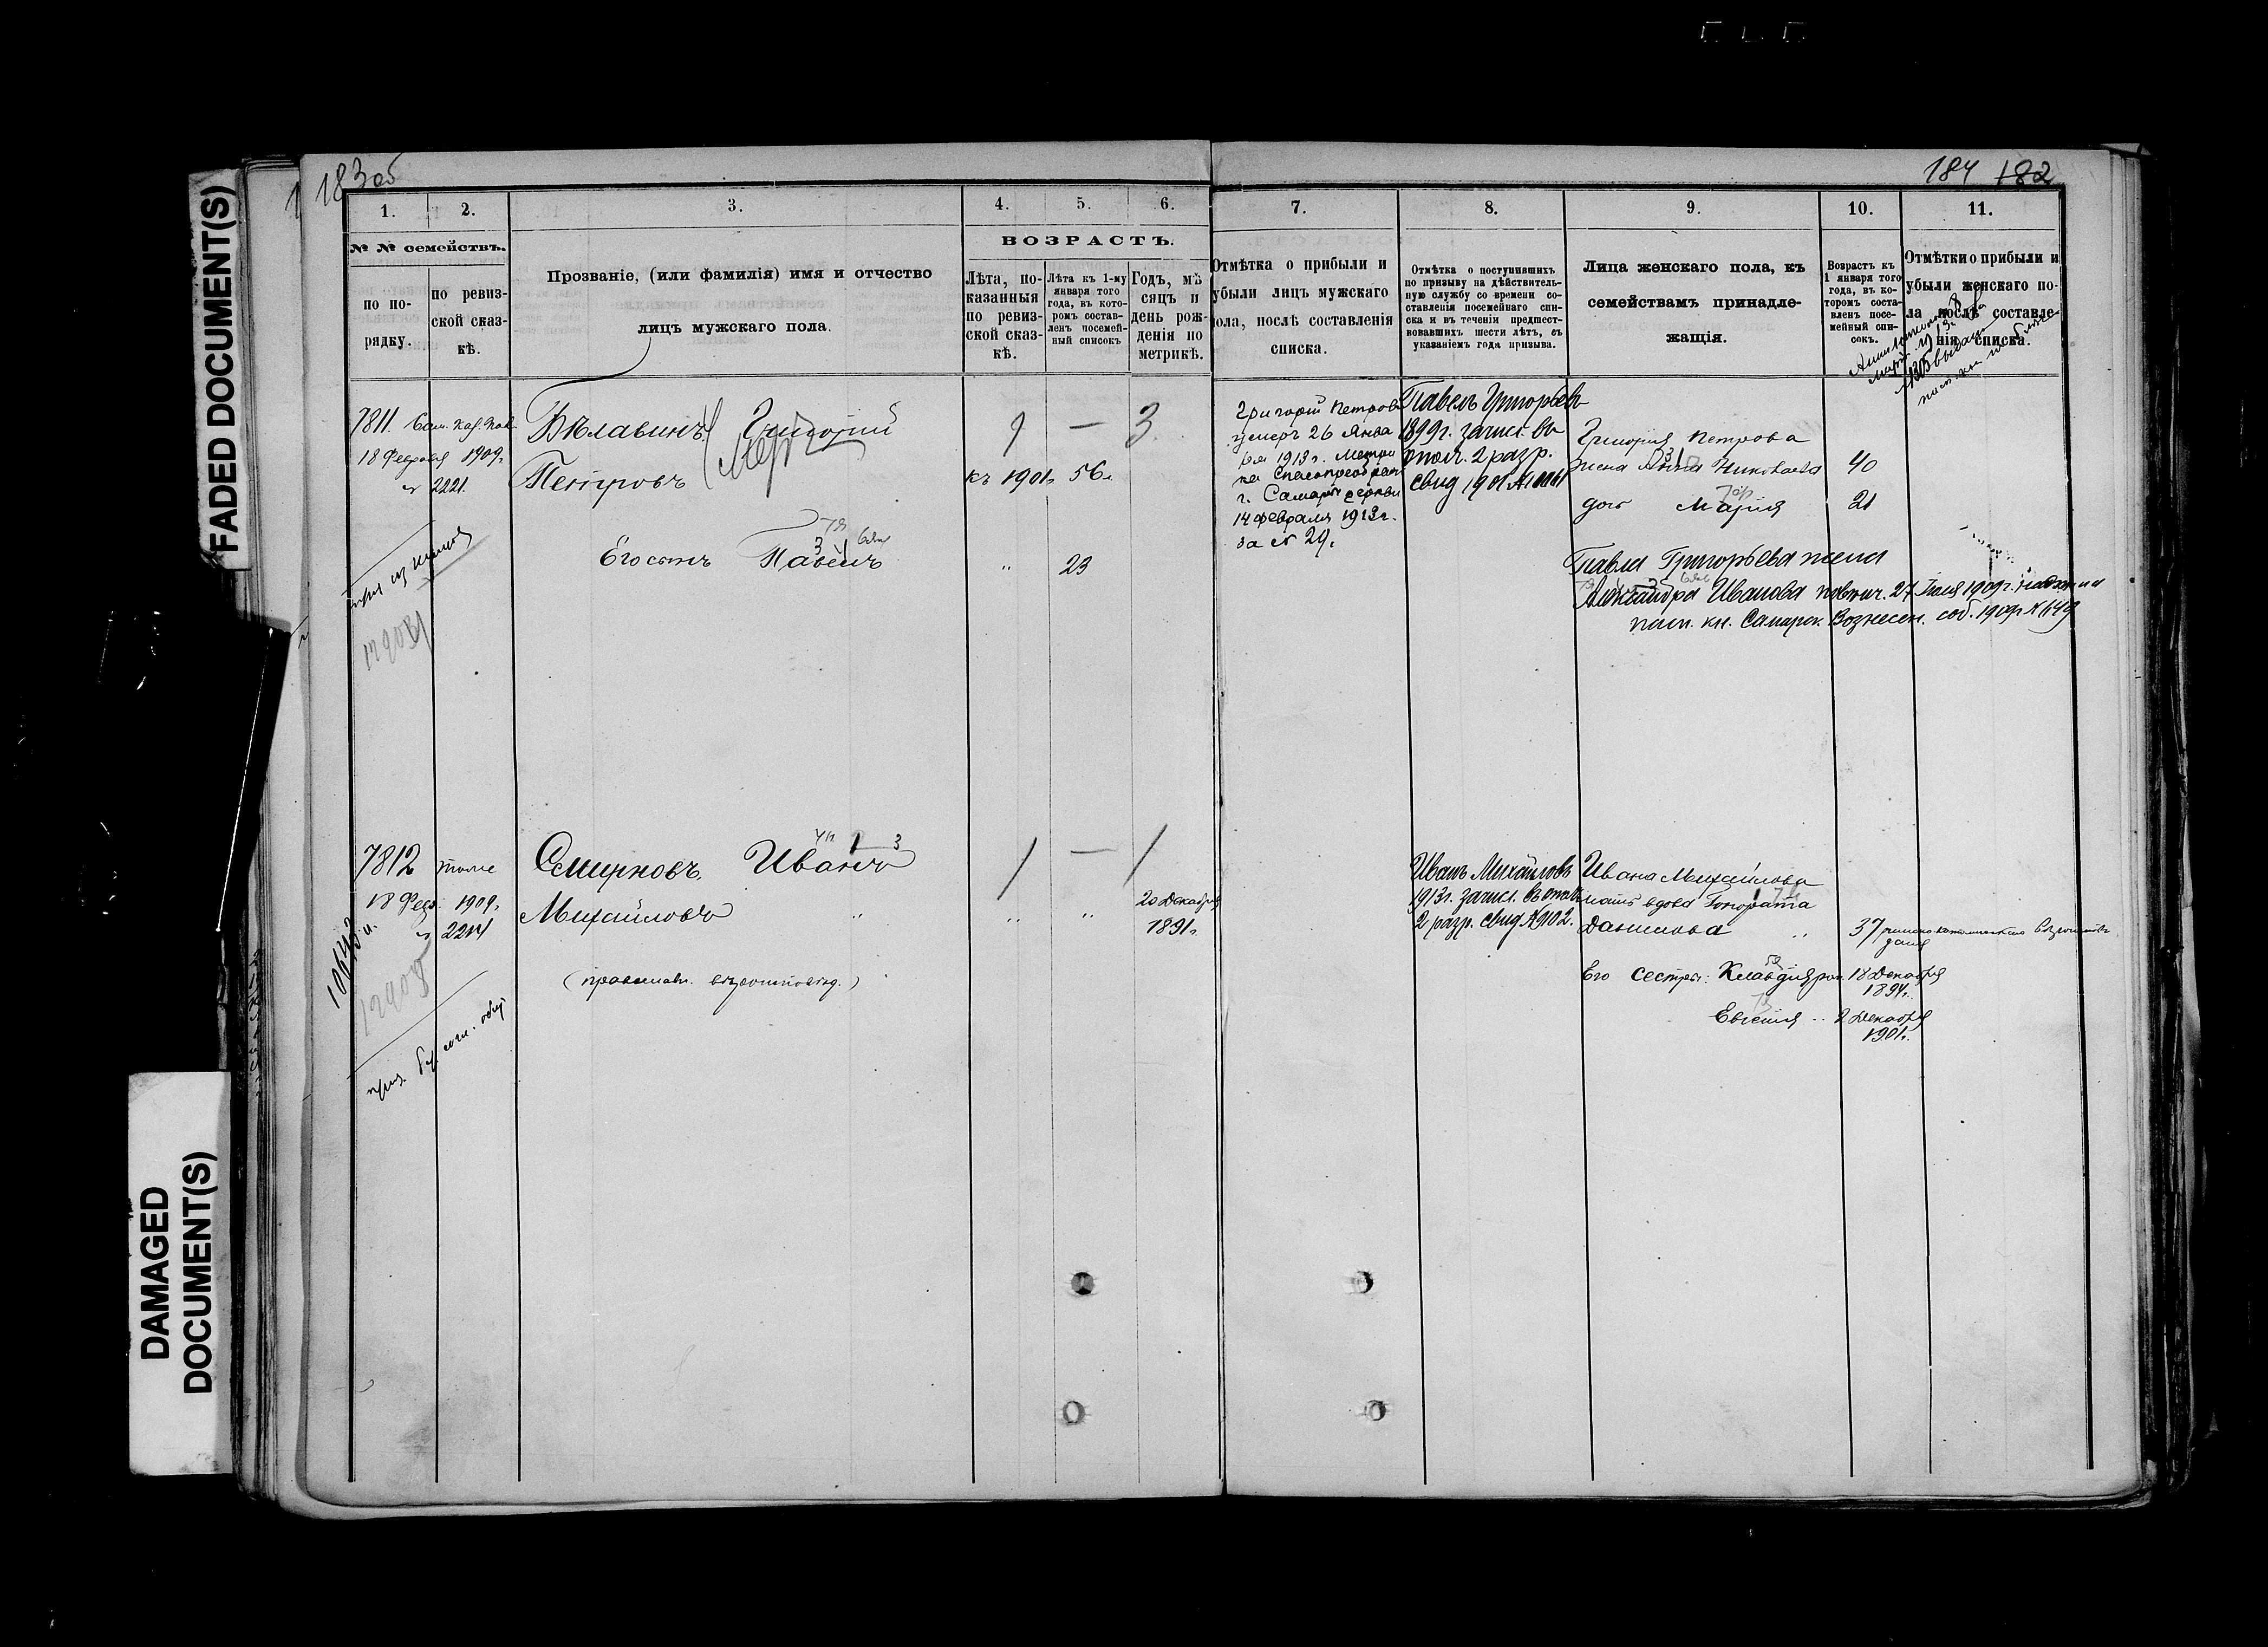 FADED DOCUMENT(S)
DAMAGED
DOCUMENT(S)
183 об
184 182
1.
2.
3.
4.
5.
6.
7.
8.
9.
10.
11.
№ № семействъ.
по по-
рядку.
по ревиз-
ской сказ-
кѣ.
Прозваніе, (или фамилія) имя и отчество
лицъ мужскаго пола.
ВОЗРАСТЪ.
Лѣта, по-
казанныя
по ревиз-
ской сказ-
кѣ.
Лѣта къ 1-му
января того
года, въ кото-
ромъ состав-
ленъ посемей-
ный списокъ
Годъ, мѣ
сяцъ и
день рож-
денія по
метрикѣ.
Отмѣтка о прибыли и
убыли лицъ мужскаго
пола, послѣ составленія
списка.
Отмѣтка о поступившихъ
по призыву на дѣйствитель-
ную службу со времени со-
ставленія посемейнаго спи-
ска и въ теченіи предшест-
вовавшихъ шести лѣтъ, съ
указаніемъ года призыва.
Лица женскаго пола, къ
семействамъ принадле-
жащія.
Возрастъ къ
1 января того
года, въ ко-
торомъ соста-
вленъ посе-
мейный спи-
сокъ.
Отмѣтки о прибыли и
убыли женскаго по-
ла послѣ составле-
нія списка.
7811. Сам. каз. пал.
18 Февраля 1909 г.
№ 2221.
Бѣлавинъ Григорій
Петровъ
1 — 3
къ 1901 г. 56 л.
Его сынъ Павелъ
" 23
Григорій Петровъ
умеръ 26 Янва
ря 1913 г. Метри
ка Спасопреображ
г. Самары церкви
14 февраля 1913 г.
за № 24.
Павелъ Григорьевъ
1899 г. зачисл. въ
ополч. 2 разр.
свид 1901
Григорія Петрова
жена Анна Николаева 40
дочь Марія 21
Павла Григорьева жена
Александра Иванова повѣнч. 27 Іюля 1909 г.
кн. Самарск. Вознесен. соб. 1909 г. № 149
7812 тоже
18 Фев. 1909 г.
№ 2214
Смирновъ Иванъ
Михайловъ "
1 — 1
" " 20 Декабря
1891 г.
(православн. вѣроисповѣд.)
Иванъ Михайловъ
1913 г. зачисл. въ ополч
2 разр. свид № 9102.
Ивана Михайлова
мать вдова Гонората
Данилова " 37 римско католическаго вѣроисповѣ
данія
Его сестры: Клавдія род. 18 Декабря
1894 г.
Евгенія " 2 Декабря
1901 г.